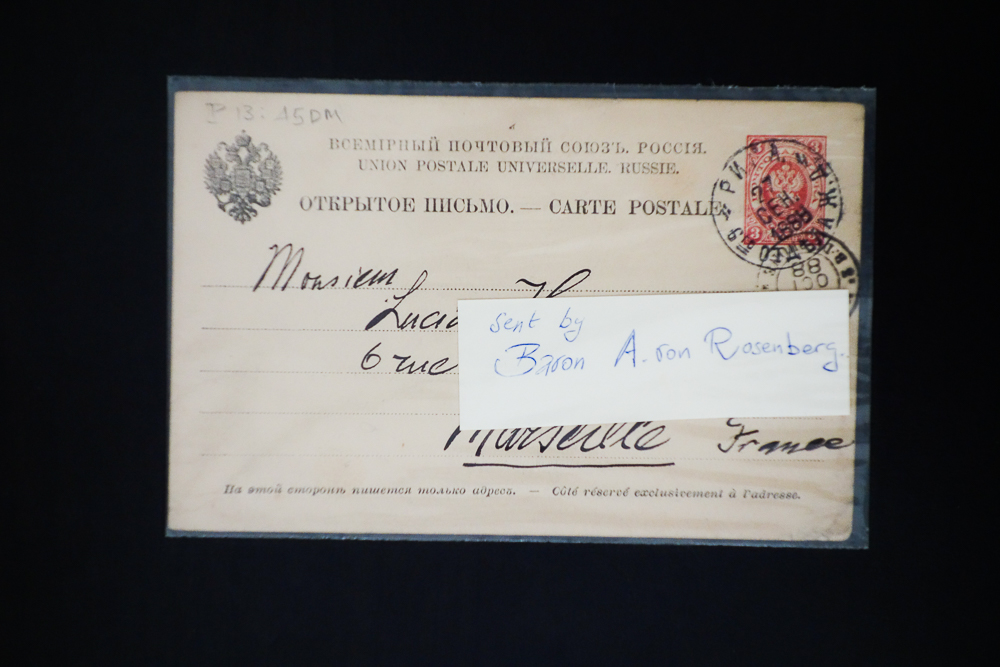 P 13: 15DM
ВСЕМІРНЫЙ ПОЧТОВЫЙ СОЮЗЪ. РОССІЯ.
UNION POSTALE UNIVERSELLE. RUSSIE.
ОТКРЫТОЕ ПИСЬМО. — CARTE POSTALE
РИГА
27
СЕН
1888
3
3
88
Monsieur
Lucie
6 rue
sent by
Baron A. von Rosenberg.
Marseille France
На этой сторонѣ пишется только адресъ. — Côté réservé exclusivement à l'adresse.